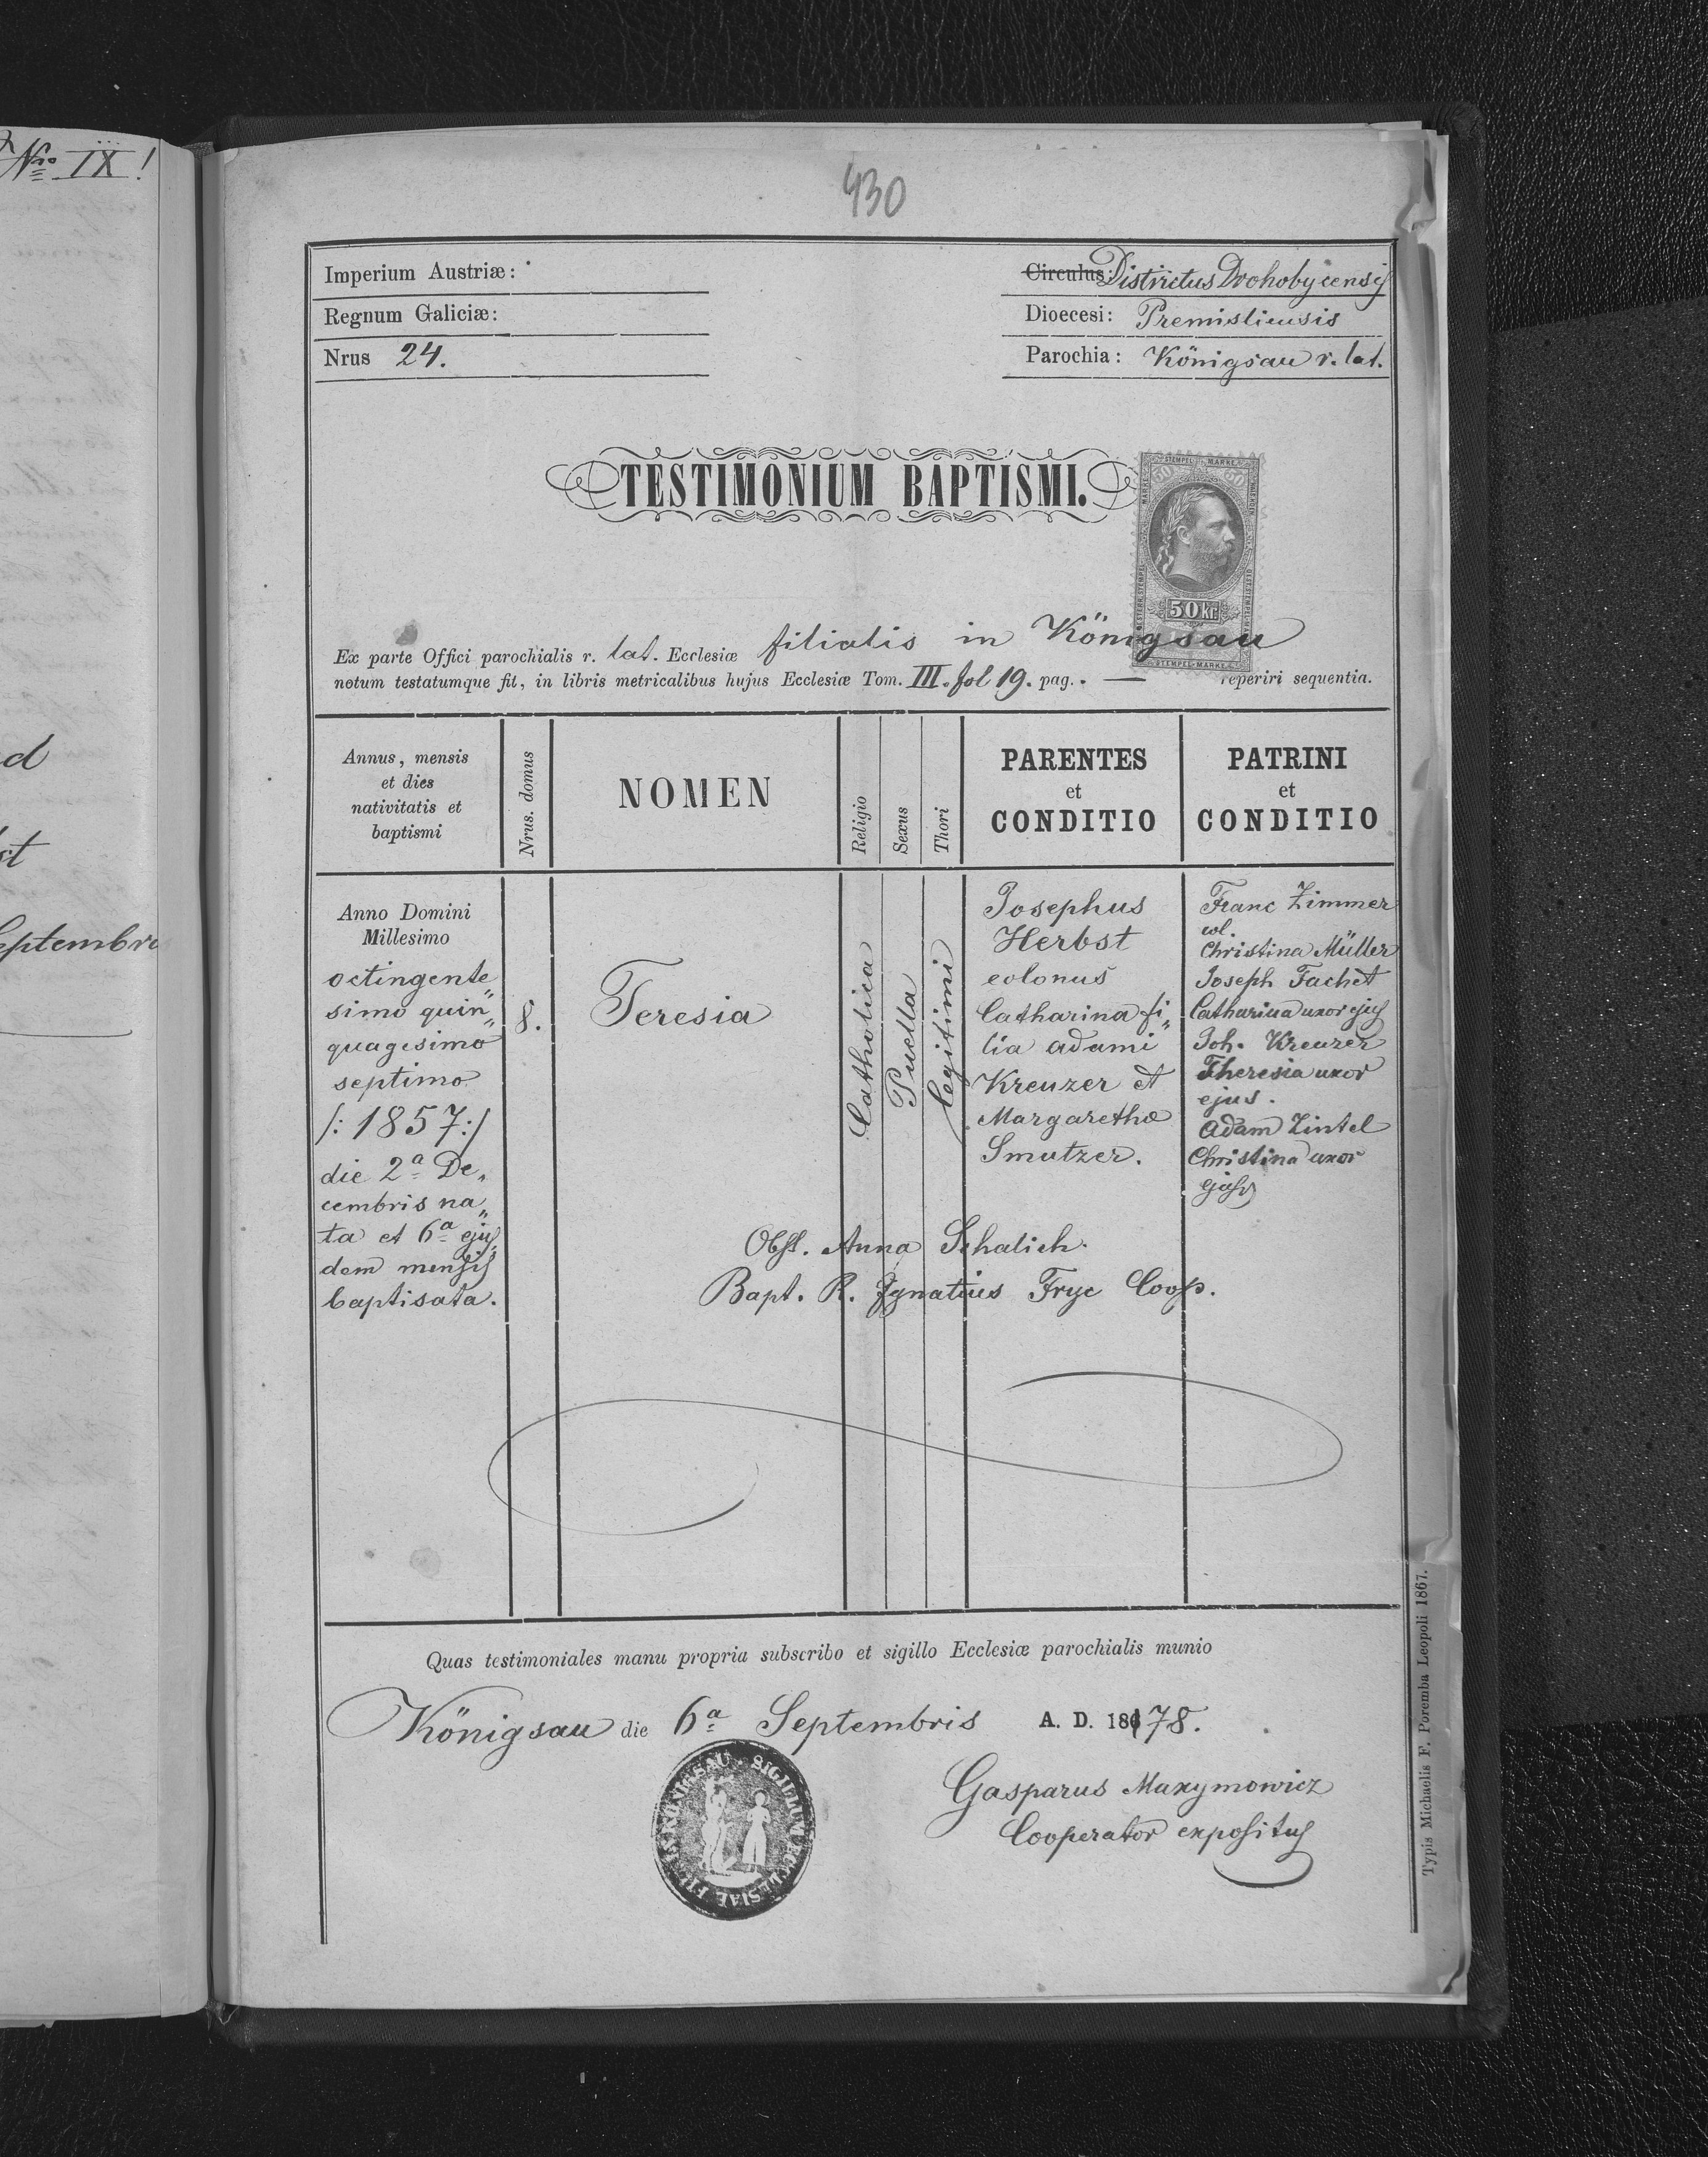 Nro IX!
d
st
Septembri
430
Imperium Austriæ:
Regnum Galiciæ:
Nrus 24.
Circulus: Districtus Drohobycensis
Dioecesi: Premisliensis
Parochia: Königsau r. lat.
TESTIMONIUM BAPTISMI.
STEMPEL MARKE
50 50
50 kr
STEMPEL-MARKE
Ex parte Offici parochialis r. lat. Ecclesiæ filialis in Königsau
notum testatumque fit, in libris metricalibus hujus Ecclesiæ Tom. III. fol 19. pag. — reperiri sequentia.
Annus, mensis
et dies
nativitatis et
baptismi
Nrus. domus
NOMEN
Religio
Sexus
Thori
PARENTES
et
CONDITIO
PATRINI
et
CONDITIO
Anno Domini
Millesimo
octingente„
simo quin„
quagesimo
septimo
/: 1857 :/
die 2a De„
cembris na„
ta et 6a ejus„
dem mensis
baptisata.
8.
Teresia
Catholica
Puella
Legitimi
Josephus
Herbst
colonus
Catharina fi„
lia Adami
Kreuzer et
Margaretha
Smutzer.
Franc Zimmer
col.
Christina Müller
Joseph Fachet
Catharina uxor ejus
Joh. Kreuzer
Theresia uxor
ejus.
Adam Zintel
Christina uxor
ejus
Obst. Anna Schalich.
Bapt. R. Ignatius Fryc Coop.
Quas testimoniales manu propria subscribo et sigillo Ecclesiæ parochialis munio
Königsau die 6a Septembris A. D. 18678.
SIGILLUM ECCLESIAE FIL. KÖNIGSAU
Gasparus Maxymowicz
Cooperator expositus
Typis Michaelis F. Poremba Leopoli 1867.